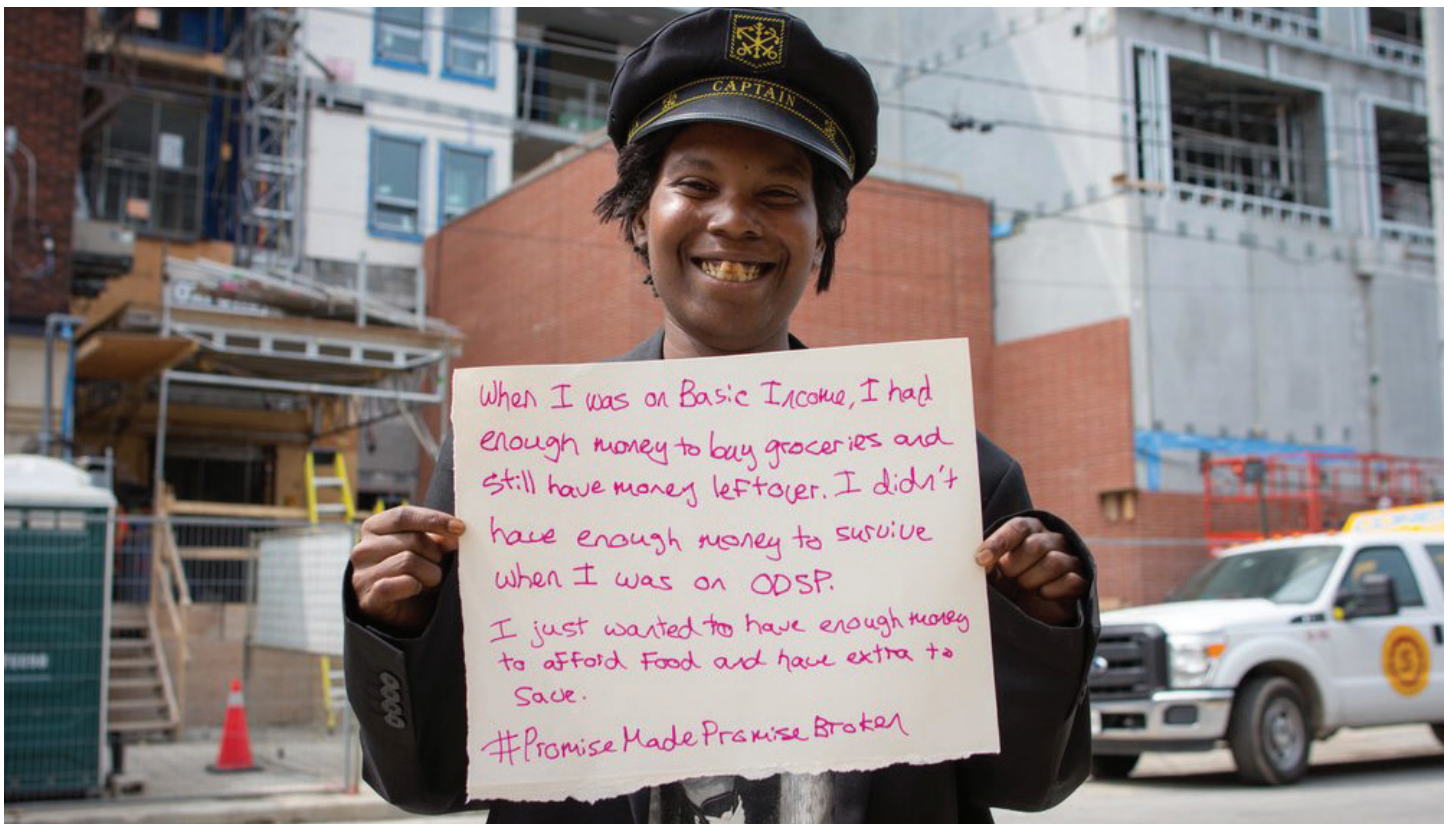 CAPTAIN
When I was on Basic Income, I had
enough money to buy groceries and
still have money leftover. I didn't
have enough money to survive
when I was on ODSP.
I just wanted to have enough money
to afford Food and have extra to
save.
#PromiseMadePromiseBroken